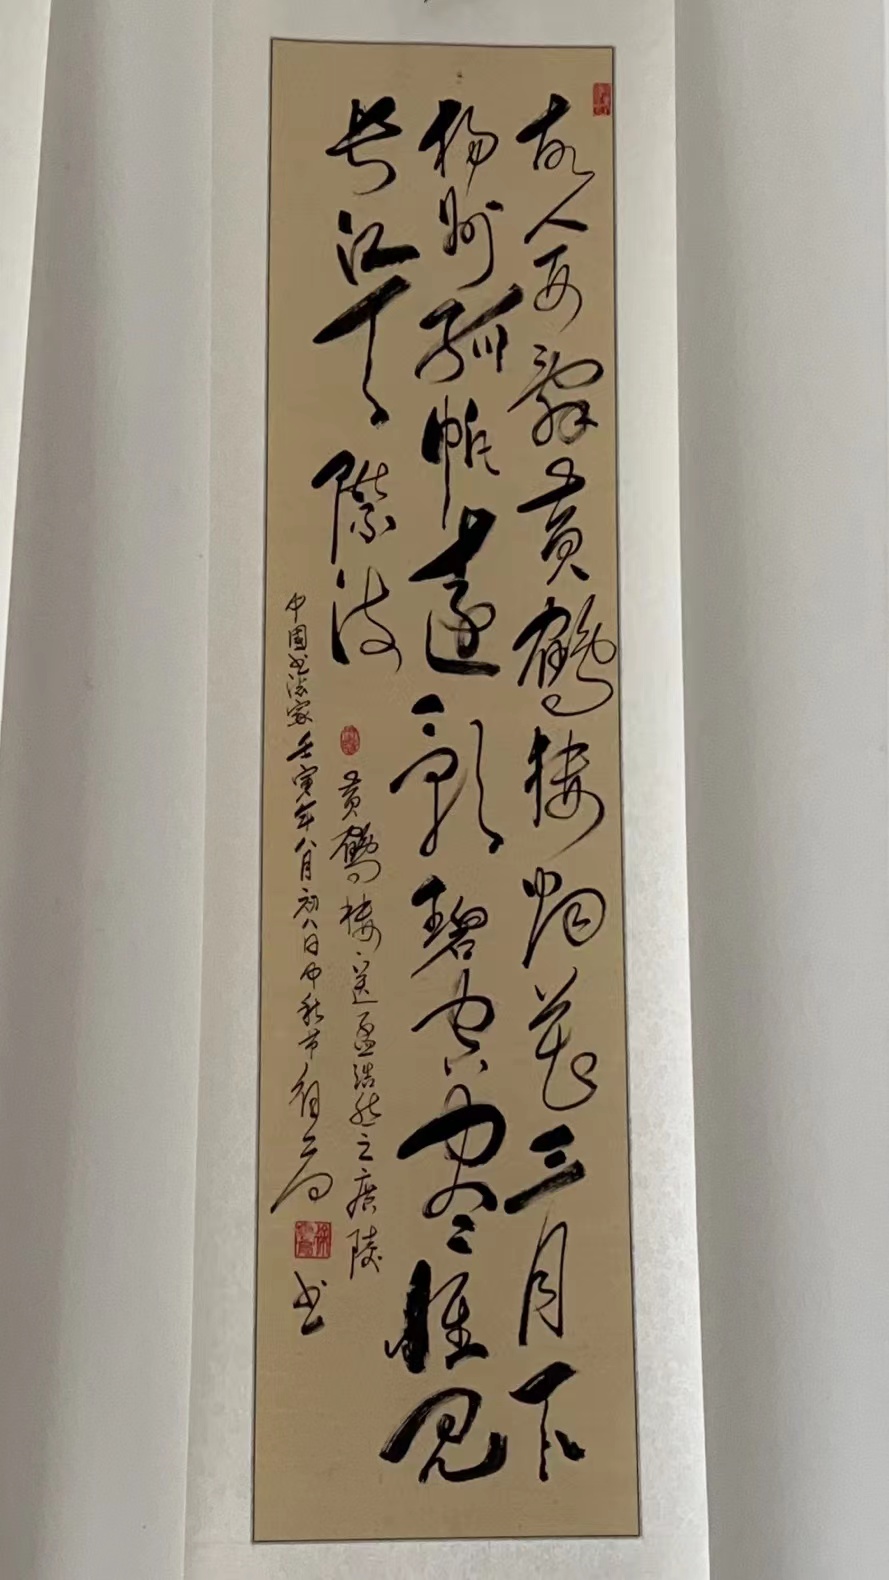 故人西辞黄鶴楼烟花三月下
扬州孤帆遠影碧空尽唯见
长江天际流
黄鶴楼送孟浩然之廣陵
中國书法家壬寅年八月初八日中秋节
书